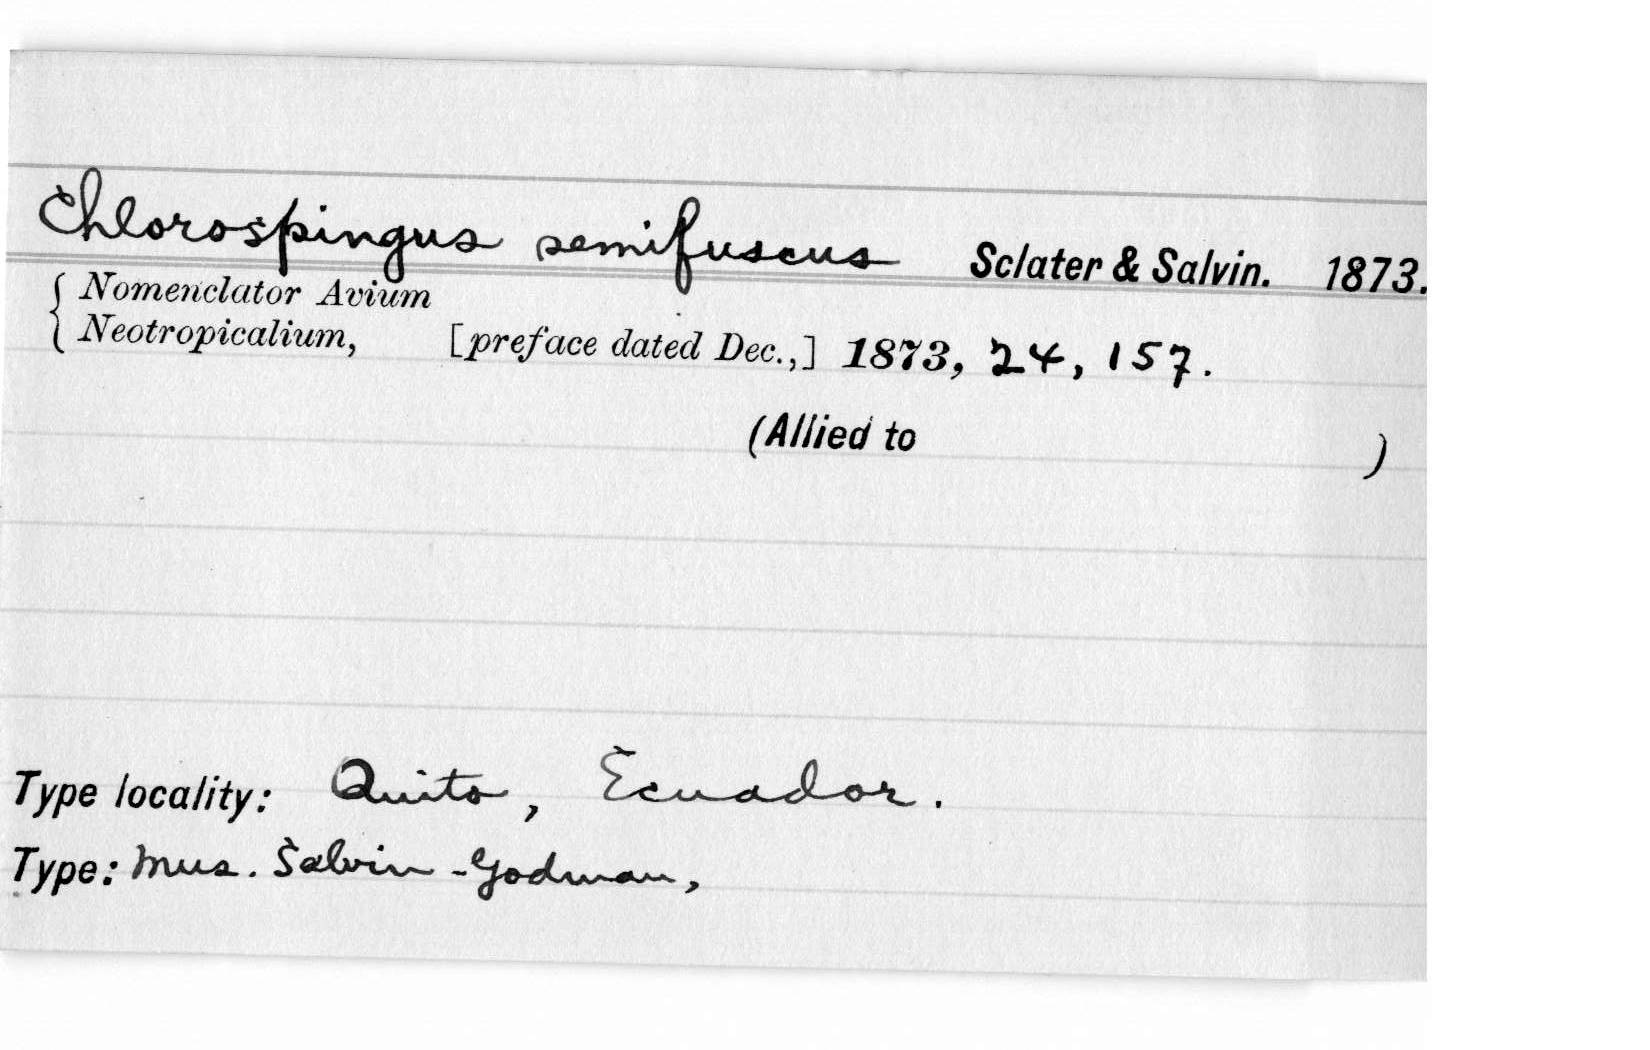 Chlorospingus semifuscus Sclater & Salvin. 1873.
{ Nomenclator Avium
Neotropicalium, [preface dated Dec.,] 1873, 24, 157.
(Allied to )
Type locality: Quito, Ecuador.
Type: Mus. Salvin-Godman,